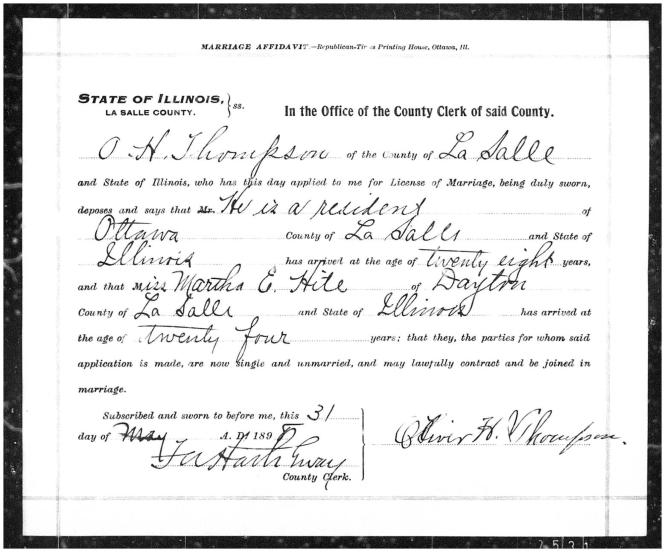 MARRIAGE AFFIDAVIT.—Republican-Times Printing House, Ottawa, Ill.
STATE OF ILLINOIS, } ss.
LA SALLE COUNTY.
In the Office of the County Clerk of said County.
O. H. Thompson of the County of La Salle
and State of Illinois, who has this day applied to me for License of Marriage, being duly sworn,
deposes and says that Mr. He is a resident of
Ottawa County of La Salle and State of
Illinois has arrived at the age of twenty eight years,
and that Miss Martha E. Hite of Dayton
County of La Salle and State of Illinois has arrived at
the age of twenty four years; that they, the parties for whom said
application is made, are now single and unmarried, and may lawfully contract and be joined in
marriage.
Subscribed and sworn to before me, this 31
day of May A. D. 189
County Clerk.
Oliver H. Thompson.
2531